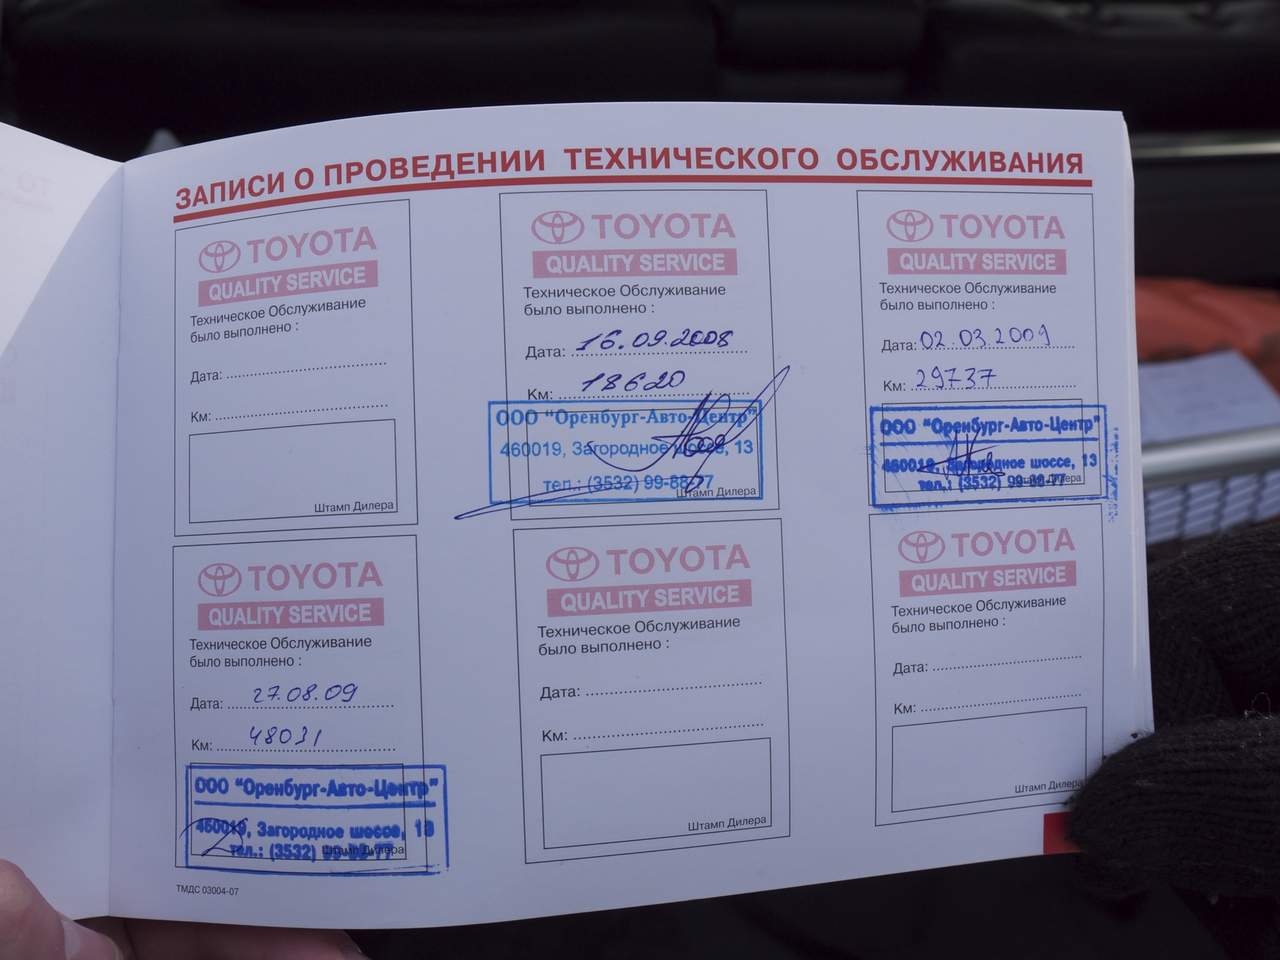 ЗАПИСИ О ПРОВЕДЕНИИ ТЕХНИЧЕСКОГО ОБСЛУЖИВАНИЯ
TOYOTA
QUALITY SERVICE
Техническое Обслуживание
было выполнено :
Дата:
Км:
Штамп Дилера
TOYOTA
QUALITY SERVICE
Техническое Обслуживание
было выполнено :
Дата: 16.09.2008
Км: 18620
ООО "Оренбург-Авто-Центр"
460019, Загородное шоссе, 13
тел.: (3532) 99-88-77
Штамп Дилера
TOYOTA
QUALITY SERVICE
Техническое Обслуживание
было выполнено :
Дата: 02.03.2009
Км: 29737
ООО "Оренбург-Авто-Центр"
460019, Загородное шоссе, 13
тел.: (3532) 99-88-77
Штамп Дилера
TOYOTA
QUALITY SERVICE
Техническое Обслуживание
было выполнено :
Дата: 27.08.09
Км: 48031
ООО "Оренбург-Авто-Центр"
460019, Загородное шоссе, 13
тел.: (3532) 99-88-77
Штамп Дилера
TOYOTA
QUALITY SERVICE
Техническое Обслуживание
было выполнено :
Дата:
Км:
Штамп Дилера
TOYOTA
QUALITY SERVICE
Техническое Обслуживание
было выполнено :
Дата:
Км:
Штамп Дилера
ТМДС 03004-07